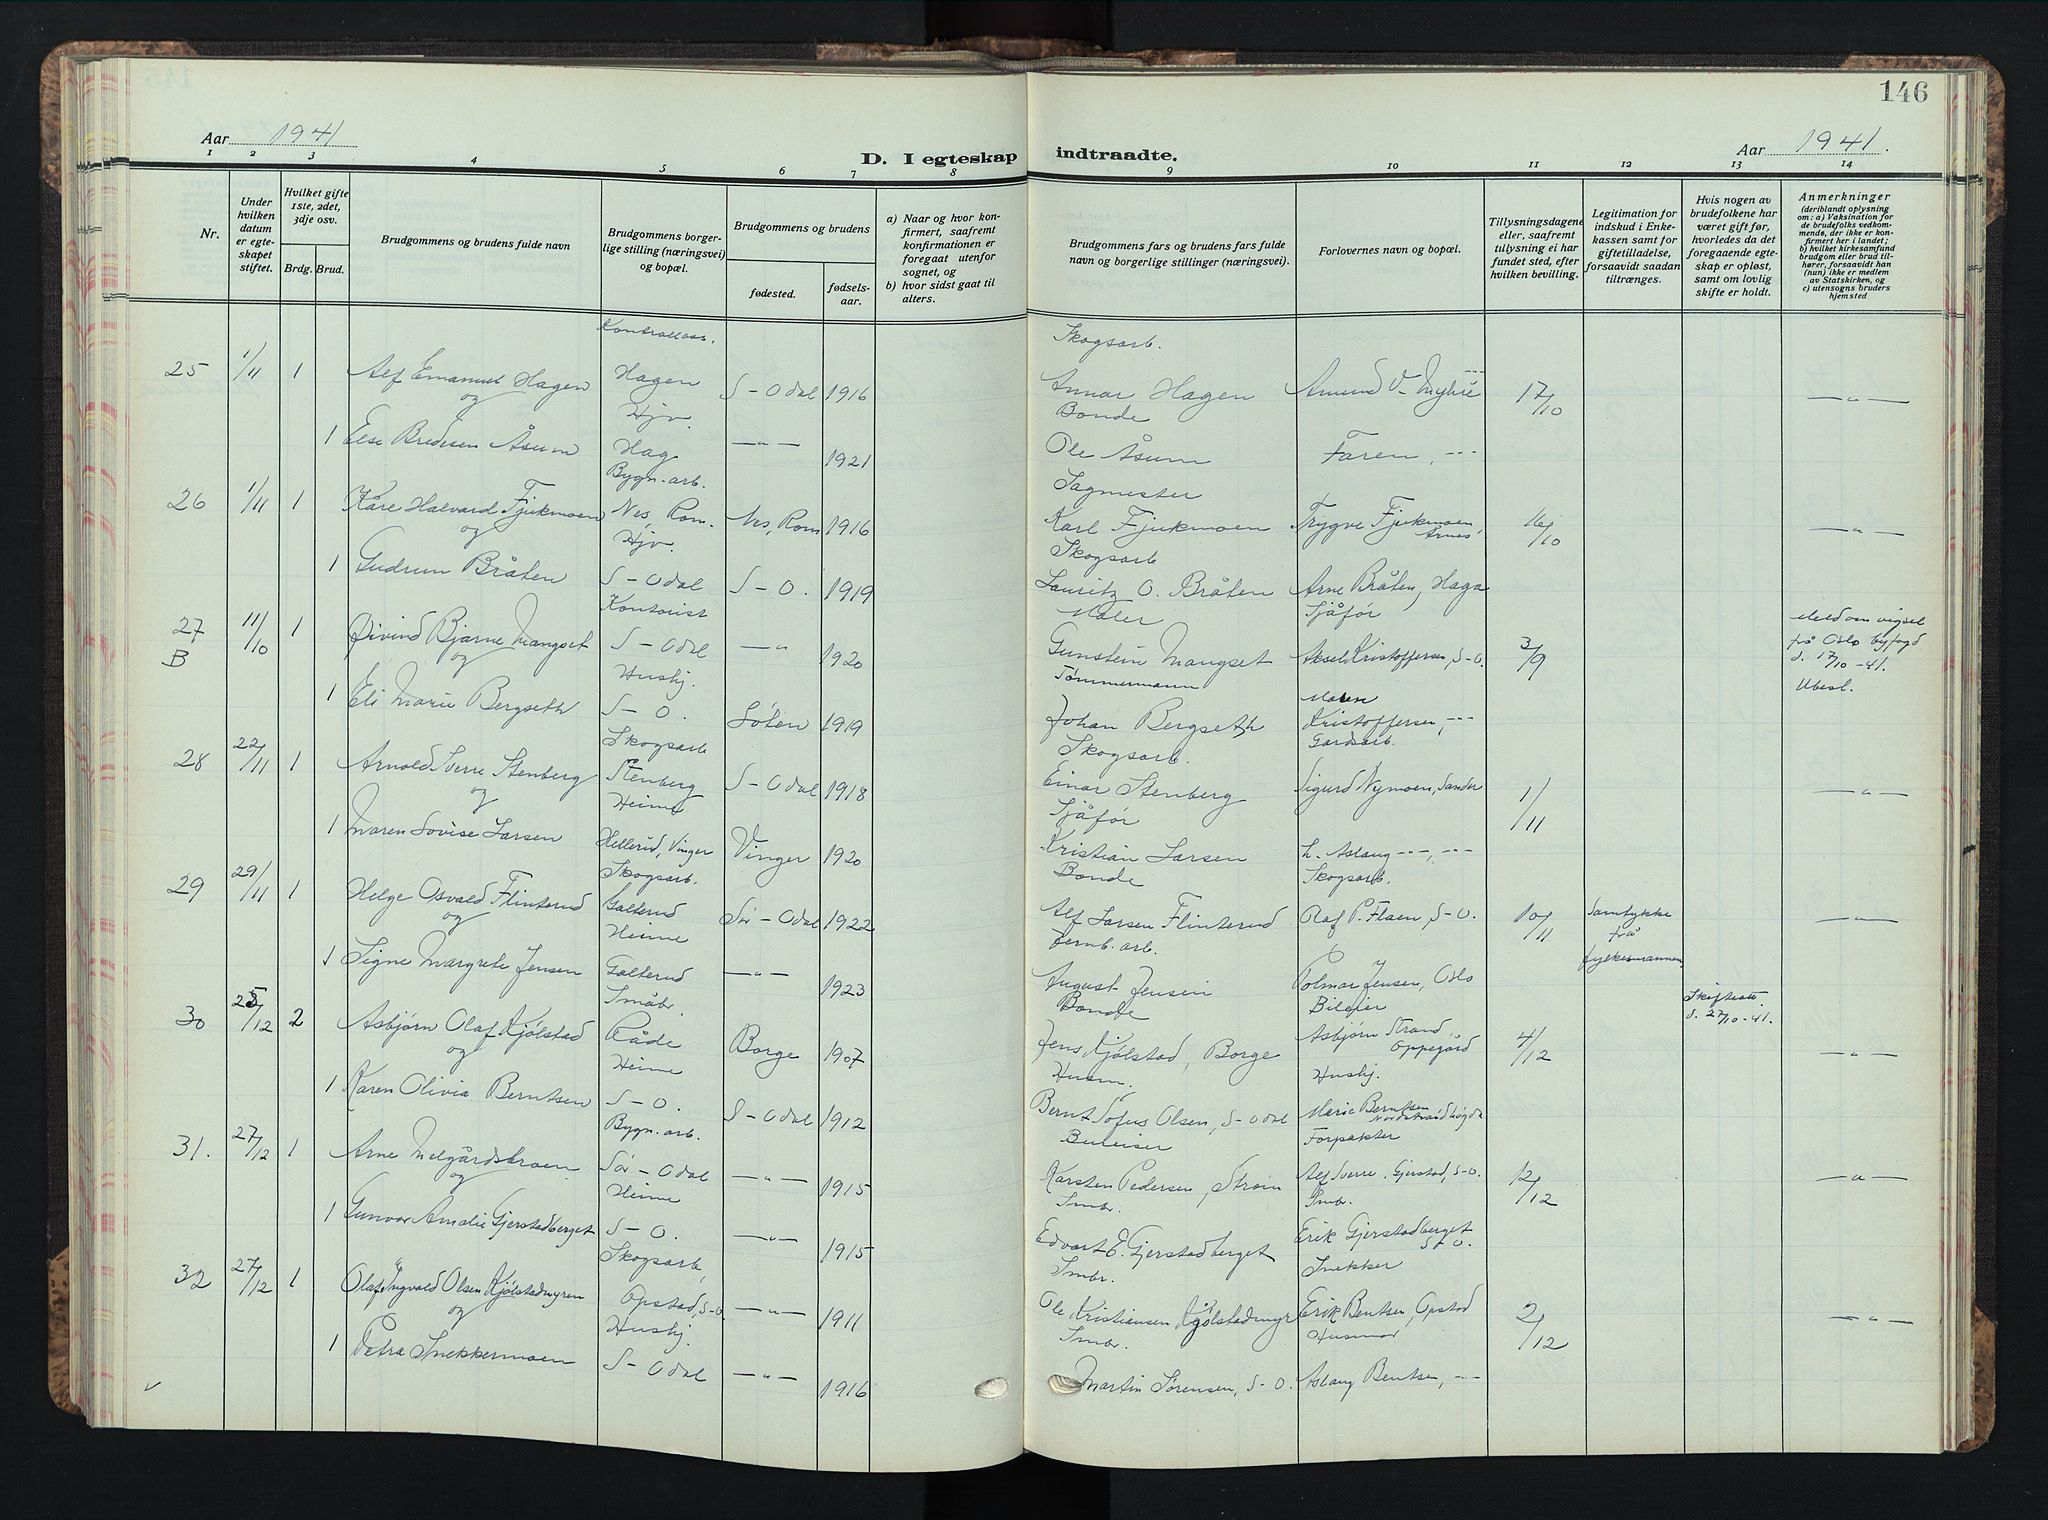 146
Aar 1941
D. I egteskap indtraadte.
Aar 1941.
1 2 3 4 5 6 7 8 9 10 11 12 13 14
Nr.
Under hvilken datum er egteskapet stiftet.
Hvilket gifte 1ste, 2det, 3dje osv.
Brdg. Brud.
Brudgommens og brudens fulde navn
Brudgommens borgerlige stilling (næringsvei) og bopæl.
Brudgommens og brudens
fødested.
fødselsaar.
a) Naar og hvor konfirmert, saafremt konfirmationen er foregaat utenfor sognet, og
b) hvor sidst gaat til alters.
Brudgommens fars og brudens fars fulde navn og borgerlige stillinger (næringsvei).
Forlovernes navn og bopæl.
Tillysningsdagene eller, saafremt tillysning ei har fundet sted, efter hvilken bevilling.
Legitimation for indskud i Enkekassen samt for giftetilladelse, forsaavidt saadan tiltrænges.
Hvis nogen av brudefolkene har været gift før, hvorledes da det foregaaende egteskap er opløst, samt om lovlig skifte er holdt.
Anmerkninger
(deriblandt oplysning om: a) Vaksination for de brudefolks vedkommende, der ikke er konfirmert her i landet; b) hvilket kirkesamfund brudgom eller brud tilhører, forsaavidt han (hun) ikke er medlem av Statskirken, og c) utensogns bruders hjemsted
Skogsarb.
25 1/11 1 Alf Emanuel Hagen Hagen S-Odal 1916 Annar Hagen 17/10 — " —
og Hjv. Bonde
1 Else Bredesen Åsum Hag. — " — 1921 Ole Åsum Faren, -"-
Bygn.arb. Sagmester
26 1/11 1 Kåre Halvard Fjukmoen Nes, Rom. Nes, Rom 1916 Karl Fjukmoen Trygve Fjukmoen, Årnes 16/10 — " —
og Hjv. Skogsarb
1 Gudrun Bråten S-Odal S-O. 1919 Lauritz O. Bråten Arne Bråten, Haga
Kontorist Maler Sjåfør
27 B 11/10 1 Øivind Bjarne Mangset S-Odal — " 1920 Gunstein Mangset Aksel Kristoffersen, S-O. 3/9 Meld om vigsel frå Oslo byfogd d. 17/10-41. Ubesl.
og Hushj. Tømmermann
1 Eli Marie Bergseth S-O. Løten 1919 Johan Bergseth Maren Kristoffersen, -"-
Skogsarb Skogsarb. Gardsarb.
28 22/11 1 Arnold Sverre Stenberg Stenberg S-Odal 1918 Einar Stenberg Sigurd Nymoen, Sander 1/11 — " —
og Heime Sjåfør
1 Maren Lovise Larsen Hellerud, Vinger Vinger 1920 Kristian Larsen h. Aslaug -"-, -"-
Skogsarb. Bonde Skogsarb.
29 29/11 1 Helge Osvald Flinterud Galterud Sør-Odal 1922 Alf Larsen Flinterud Olaf P. Flaen, S-O. 10/11 Samtykke frå fylkesmannen — " —
og Heime Jernb.arb.
1 Signe Margrete Jensen Galterud — " — 1923 August Jensen Jensen, Oslo
Småbr. Bonde Bileier
30 25/12 2 Asbjørn Olaf Kjølstad Råde Borge 1907 Jens Kjølstad, Borge Asbjørn Strand, Oppegård 4/12 Skifteatt. d. 27/10-41. — " —
og Heime Husm. Hushj.
1 Karen Olivia Berntsen S-O. S-Odal 1912 Bernt Sofus Olsen, S-Odal Marie Berntsen Nordstrandhøgda
Bygn.arb. Bureiser Forpakter
31. 27/12 1 Arne Melgårdsbroen Sør-Odal — " — 1915 Karsten Pedersen, Strøm Alf Sverre Gjerstad, S-O. 12/12 — " —
og Heime Smbr. Smbr.
1 Gunvor Amalie Gjerstadberget S-O. — " — 1915 Edvart E. Gjerstadberget Erik Gjerstadberget S-O.
Skogsarb. Smbr. Snekker
32 27/12 1 Olaf Ingvald Olsen Kjølstadmyren Opstad, S-O — " — 1911 Ole Kristiansen Kjølstadmyr Erik Bentsen, Opstad 2/12 — " —
og Hushj. Smbr. Husmor
1 Petra Snekkermoen S-Odal — " — 1916 Martin Sørensen, S-O. Aslaug Bentsen, -"-